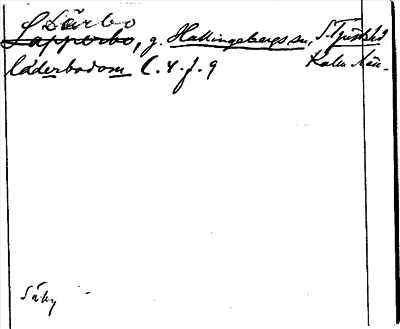 Lärbo
Lapperbo, g. Hallingebergs sn, S. Tjusts hd
läderbodom C. 4. f. 9 Kalm. län.
Säby